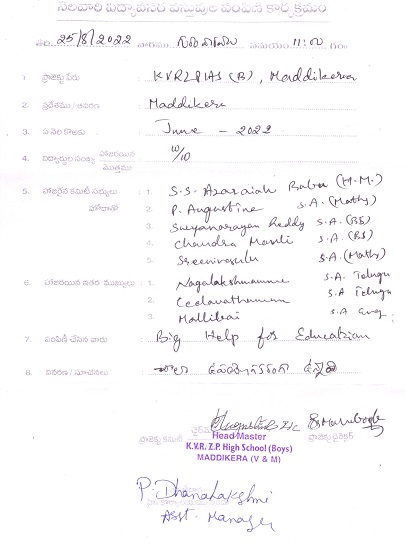 నెలవారి విద్యావసర వస్తువుల పంపిణి కార్యక్రమం
తేది 25/8/2022 వారము గురువారం సమయం 11:00 గం
1. ప్రాజెక్టు పేరు : KVRZPHS (B), Maddikera
2. ప్రదేశము / వివరణ : Maddikera
3. ఏ నెల కొఱకు : June - 2022
4. విద్యార్థుల సంఖ్య హాజరయిన మొత్తము : 10/10
5. హాజరైన కమిటి సభ్యులు హోదాతో : 1. S.S. Azaraiah Babu (H.M.)
2. P. Augustine S.A. (Maths)
3. Suryanarayan Reddy S.A. (BS)
4. Chandra Mouli S.A. (PS)
5. Sreenivasulu S.A. (Maths)
6. హాజరయిన ఇతర ముఖ్యులు : 1. Nagalakshmamma S.A. Telugu
2. Leelavathamma S.A Telugu
3. Mallibai S.A Eng.
7. పంపిణీ చేసిన వారు : Big Help for Education
8. వివరణ / సూచనలు : చాలా ఉపయోగకరంగా ఉన్నది
ప్రాజెక్టు కమిటి ప్రాజెక్టు డైరెక్టర్
Head Master
K.V.R. Z.P. High School (Boys)
MADDIKERA (V & M)
P. Dhanalakshmi
Asst. Manager